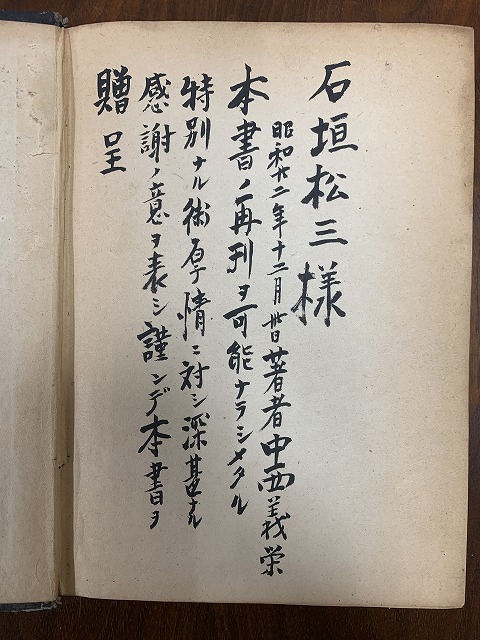 石垣松三様
昭和廿二年十二月廿日著者中西義栄
本書ノ再刊ヲ可能ナラシメタル
特別ナル御厚情ニ対シ深甚ナル
感謝ノ意ヲ表シ謹ンデ本書ヲ
贈呈